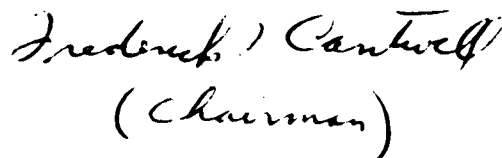 Frederick Cantwell
(Chairman)